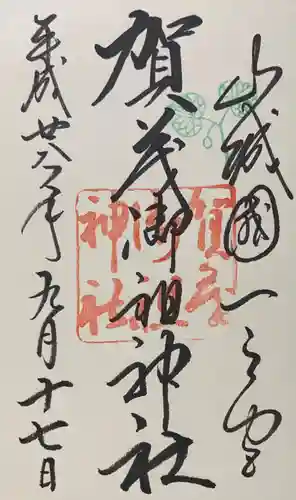 山城國一之宮
賀茂御祖神社
平成廿八年九月十七日
賀茂
御祖
神社